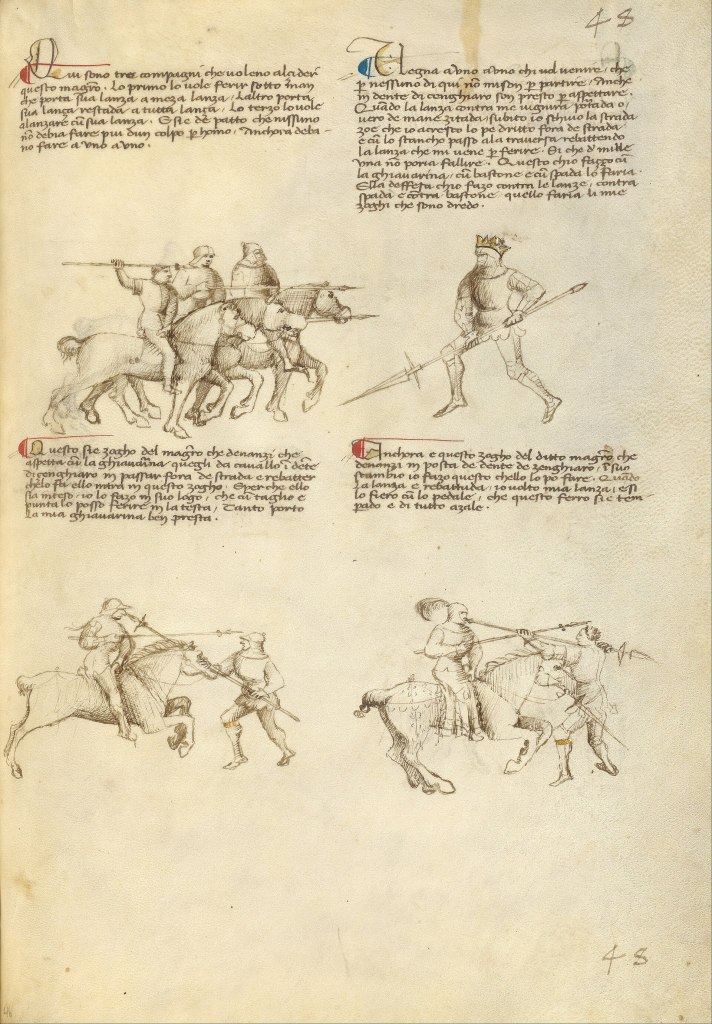 48
Qui sono tre compagni che voleno alcider
questo magistro. Lo primo lo vole ferir sotto man
che porta sua lanza a meza lanza. Laltro porta
sua lanza restada a tutta lanza. Lo terzo lo vole
alanzare cum sua lanza. E si e de patto che nissuno
non debia fare piu dun colpo per homo. Anchora deba-
no fare a uno a uno.
Vegna a uno a uno chi vol venire, che
per nessuno di qui non mison per partire. Anche
in dente di cenghiaro son presto per aspettare.
Quando la lanza contra me vignira portada o
vero de mane zitada, subito io schivo la strada
zoe che io acresco lo pe dritto fora de strada
e cum lo stancho passo ala traversa rebattendo
la lanza che mi vene per ferire. Si che d' mille
una non poria fallire. Questo chio fazzo cum
la ghiavarina, cum bastone e cum spada lo faria.
Ella deffesa chio fazo contra le lanze, contra
spada e contra bastone quello faria li mie
zoghi che sono dredo.
Questo sie zogho del magistro che denanzi che
aspetta cum la ghiavarina quegli da cavallo in dente
di cenghiaro in passar fora de strada e rebatter
chelo fa ello intra in questo zogho. E perche ello
sia inteso, io lo fazo in suo logo, che cum taglio e
punta lo posso ferire in la testa, Tanto porto
la mia ghiavarina ben presta.
Anchora e questo zogho del ditto magistro che
denanzi in posta de dente de zenghiaro. In suo
scambio io fazo questo chello lo po fare. Quando
la lanza e rebattuda, io volto mia lanza, e si
lo fiero cum lo pedale, che questo ferro sie tem-
pado e di tutto azale.
48
46